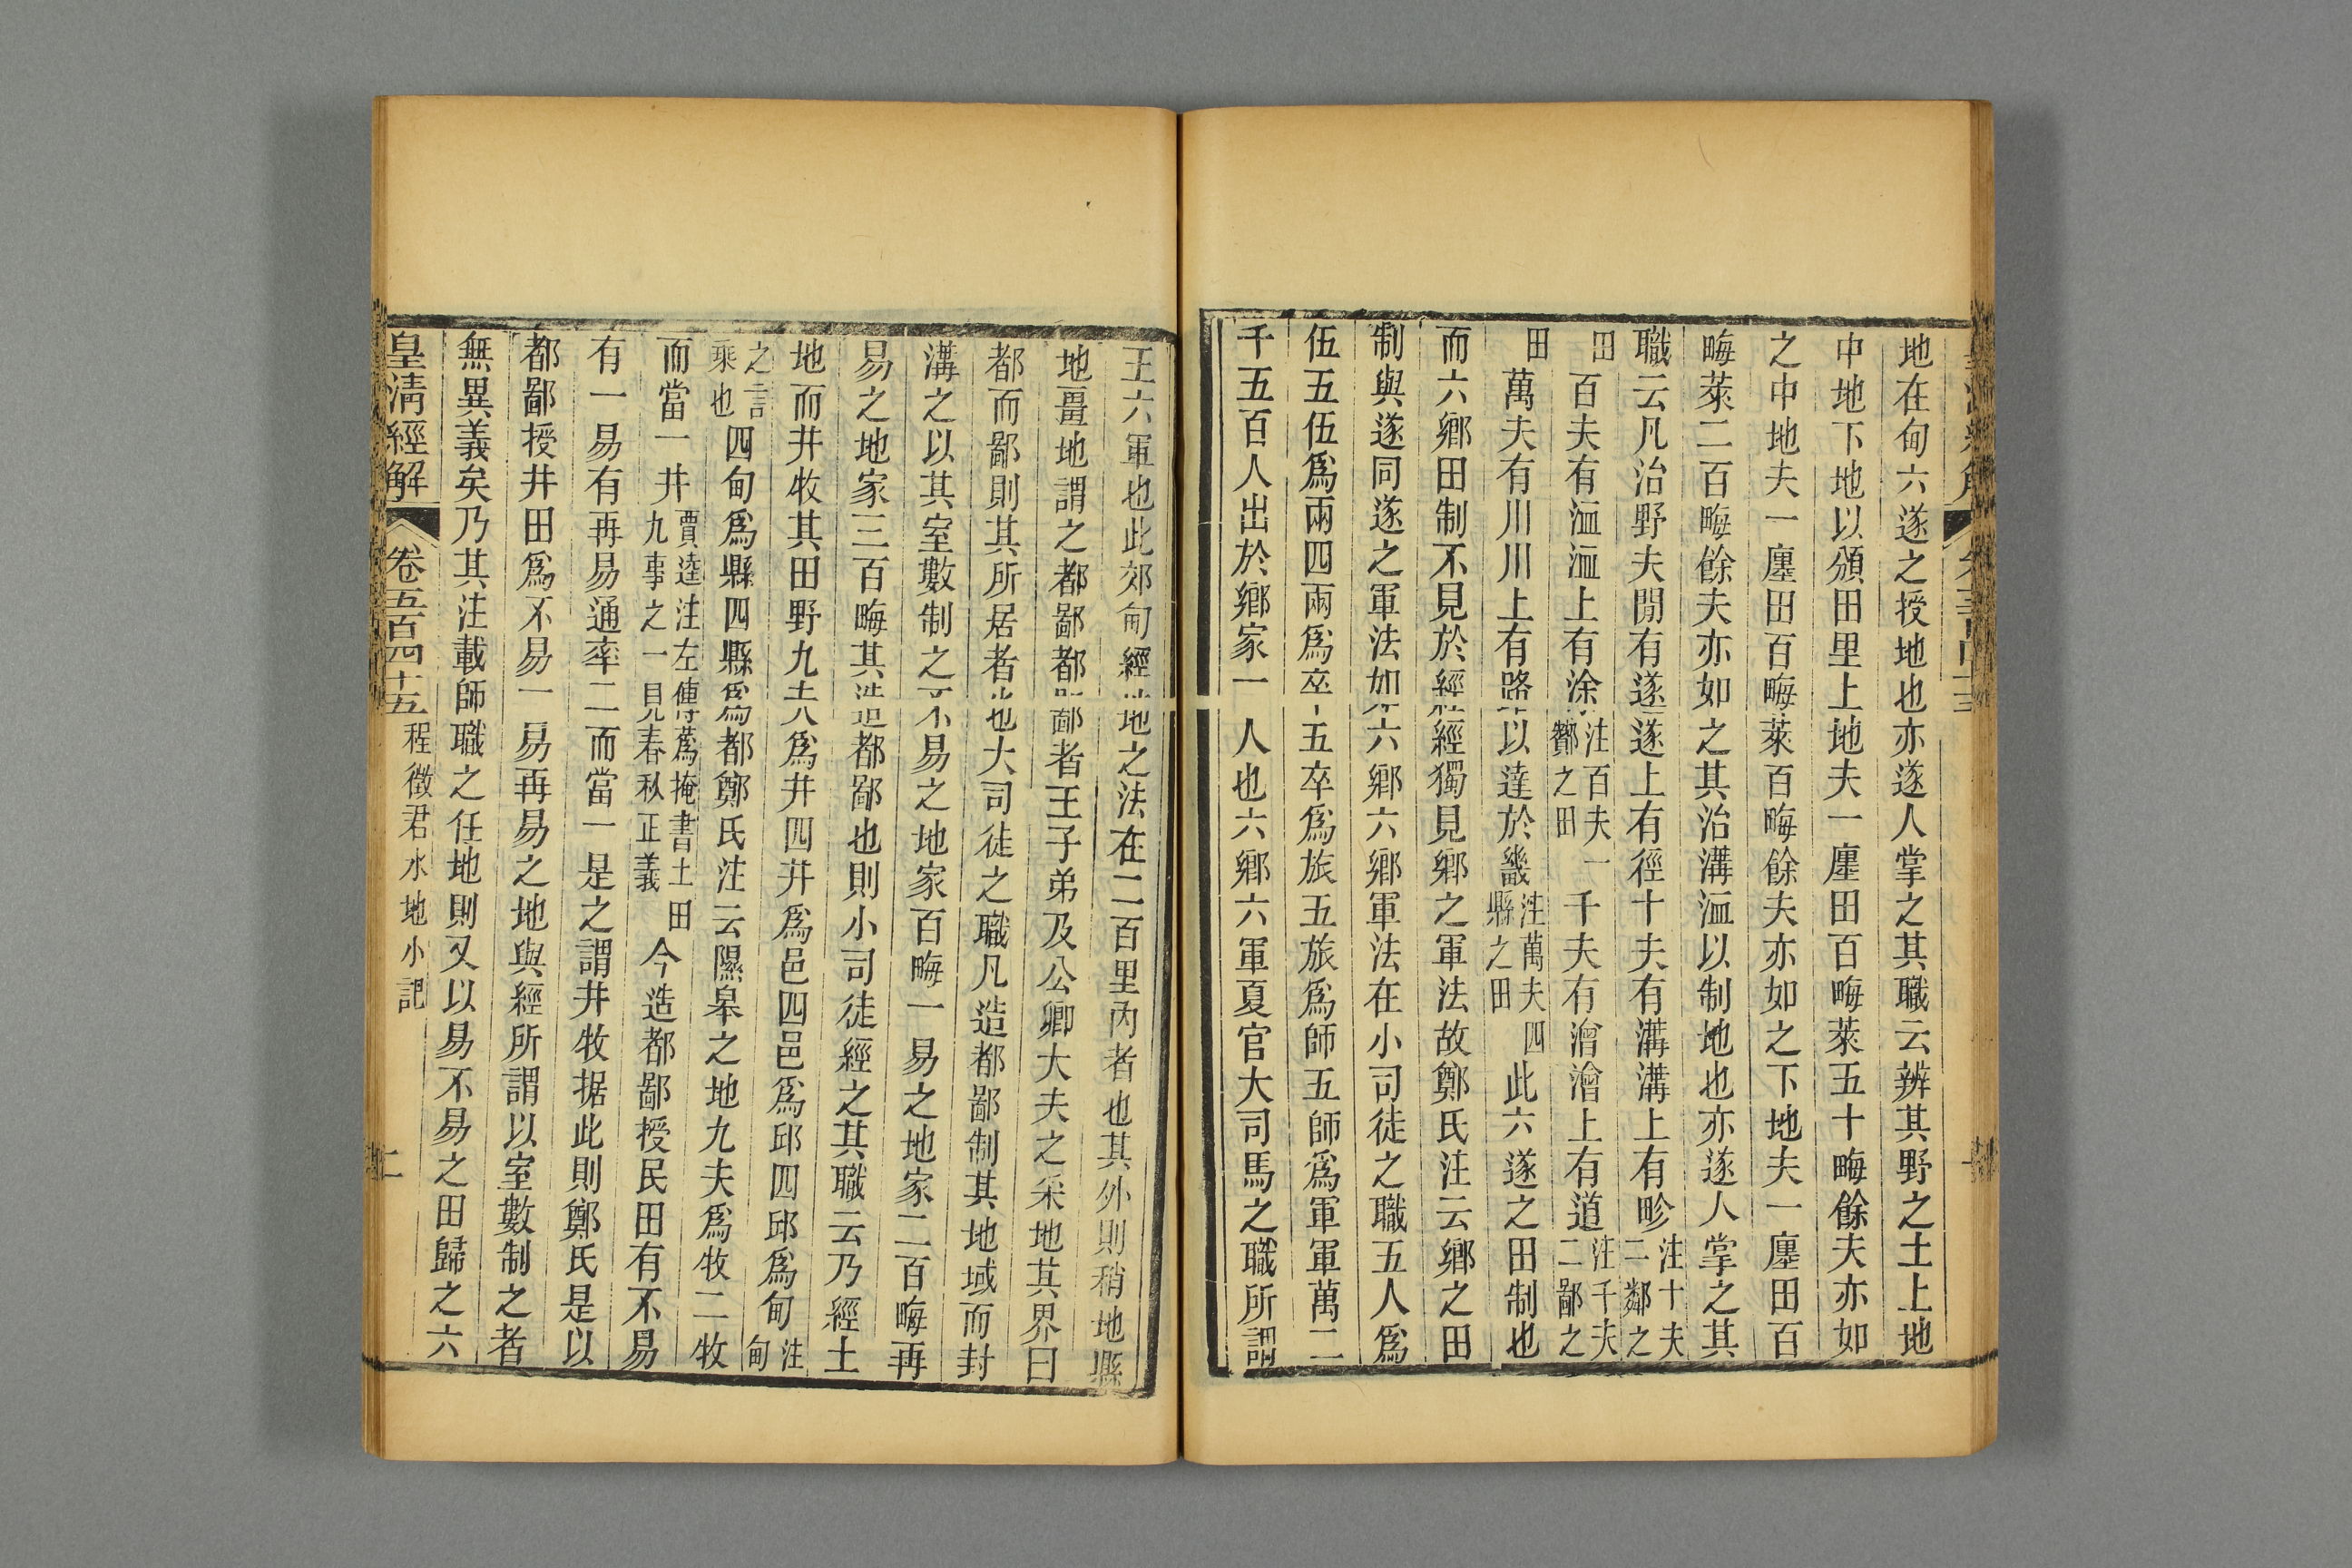 地在甸六遂之授地也亦遂人掌之其職云辨其野之土上地
中地下地以頒田里上地夫一廛田百畮萊五十畮餘夫亦如
之中地夫一廛田百畮萊百畮餘夫亦如之下地夫一廛田百
畮萊二百畮餘夫亦如之其治溝洫以制地也亦遂人掌之其
職云凡治野夫閒有遂遂上有徑十夫有溝溝上有畛注十夫二鄰之
田百夫有洫洫上有涂注百夫一酇之田千夫有澮澮上有道注千夫二鄙之
田萬夫有川川上有路以達於畿注萬夫四縣之田此六遂之田制也
而六鄉田制不見於經獨見鄉之軍法故鄭氏注云鄉之田
制與遂同遂之軍法如六鄉六鄉軍法在小司徒之職五人爲
伍五伍爲兩四兩爲卒五卒爲旅五旅爲師五師爲軍軍萬二
千五百人出於鄉家一人也六鄉六軍夏官大司馬之職所謂
王六軍也此郊甸經地之法在二百里內者也其外則稍地縣
地畺地謂之都鄙都鄙者王子弟及公卿大夫之采地其界曰
都而鄙則其所居者也大司徒之職凡造都鄙制其地域而封
溝之以其室數制之不易之地家百畮一易之地家二百畮再
易之地家三百畮其造都鄙也則小司徒經之其職云乃經土
地而井牧其田野九夫爲井四井爲邑四邑爲邱四邱爲甸注甸
之言乘也四甸爲縣四縣爲都鄭氏注云隰皋之地九夫爲牧二牧
而當一井賈逵注左傳蔿掩書土田九事之一見春秋正義今造都鄙授民田有不易
有一易有再易通率二而當一是之謂井牧据此則鄭氏是以
都鄙授井田爲不易一易再易之地與經所謂以室數制之者
無異義矣乃其注載師職之任地則又以易不易之田歸之六
皇清經解 卷五百四十五 程徵君水地小記 二